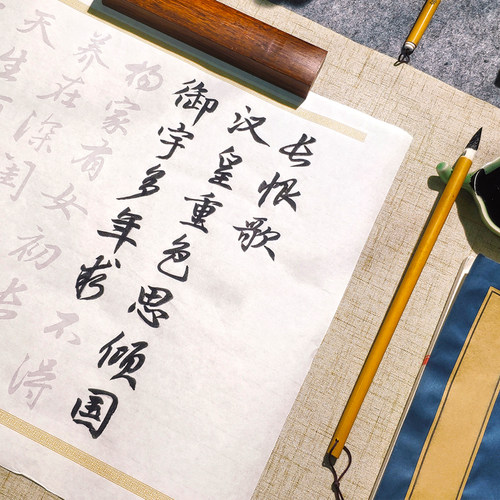 长恨歌
汉皇重色思倾国
御宇多年求不得
杨家有女初长
养在深闺
天生